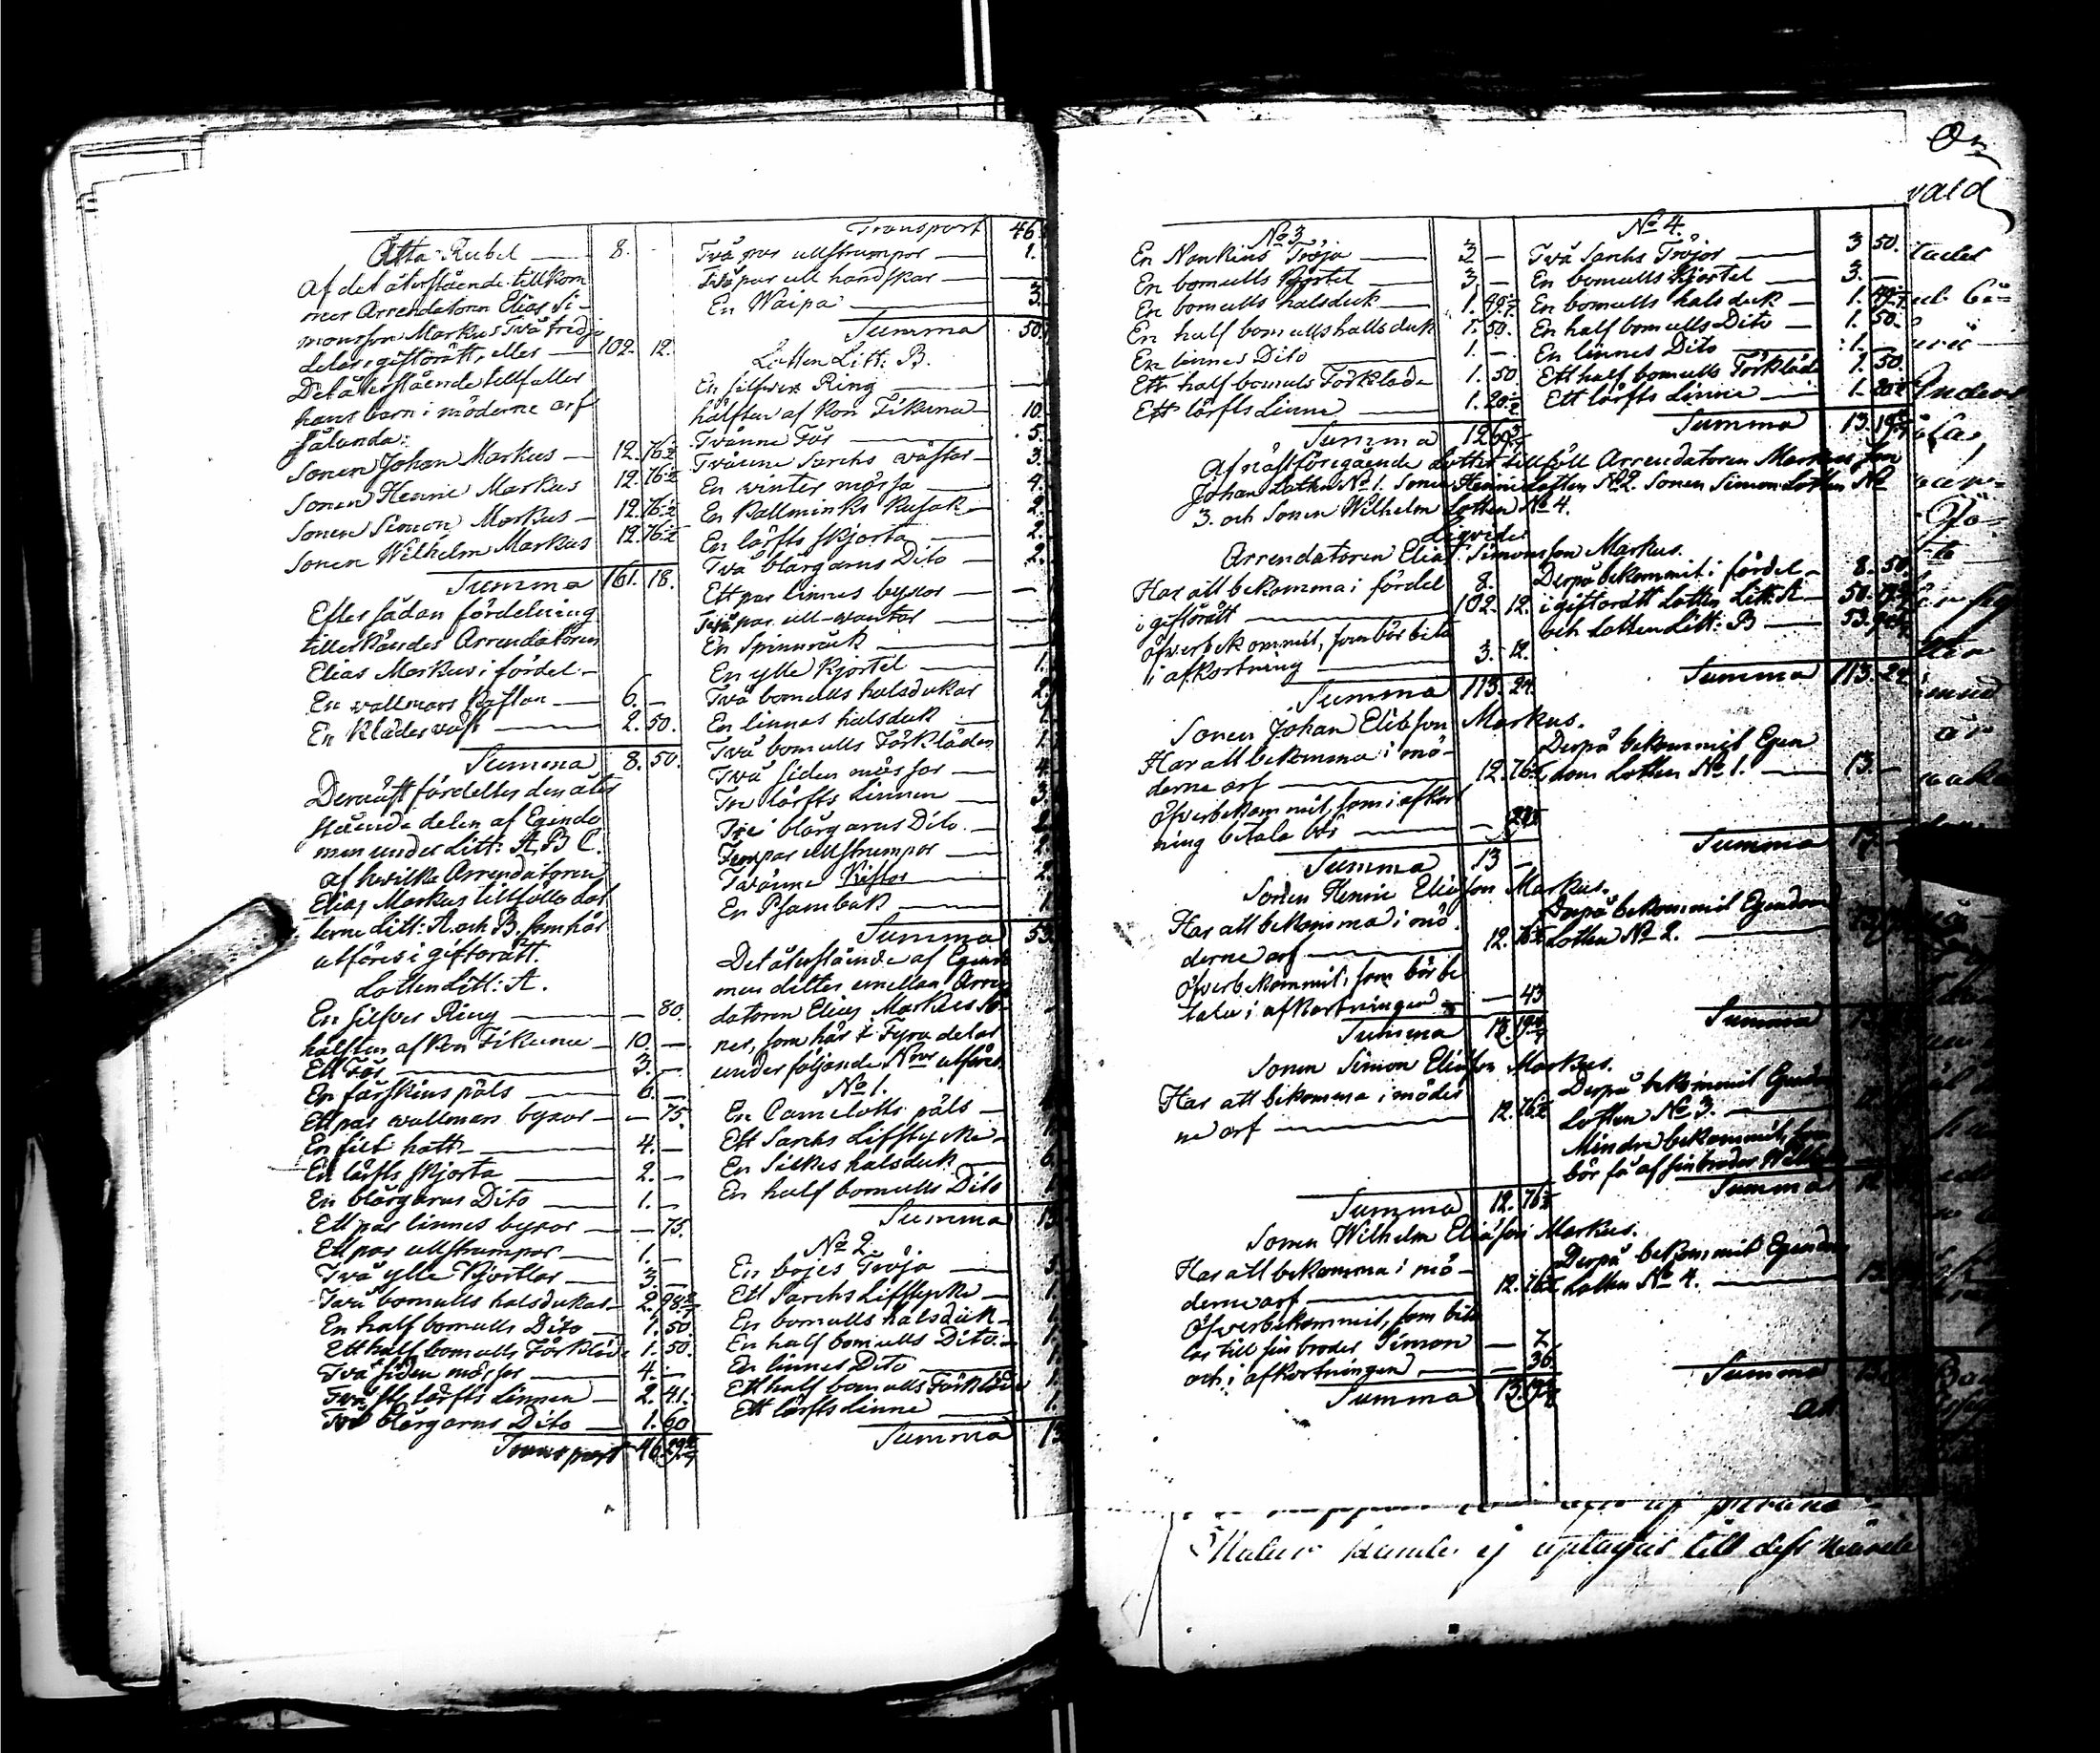 Åtta Rubel — 8. -
Af det återstående tillkom
mer Arrendatoren Elias Si-
monsson Markus två tridje
delar i giftorätt, eller — 102. 12.
Det återstående tillfaller
hans barn i möderne arf
sålunda:
Sonen Johan Markus — 12. 76½
Sonen Henric Markus 12. 76½
Sonen Simon Markus — 12. 76½
Sonen Wilhelm Markus 12. 76½
Summa 161. 18.
Efter sådan fördelning
tillerkändes Arrendatoren
Elias Markus i fördel —
En wallmars Kaftan — 6. —
En Klädes wäst — 2. 50.
Summa 8. 50.
Dernäst fördeltes den åter
stående delen af Egendo
men under Litt: A, B C.
af hvilka Arrendatoren
Elias Markus tillföllo lot
terne Litt: A. och B. som här
utföres i giftorätt.
Lotten Litt: A.
En silfver Ring — — 80.
hälften af Kon Fikuna — 10. —
Ett Får — 3. —
En fårskins päls — 6. —
Ett par wallmars byxor — — 75.
En filt hatt — 4. —
En lärfts skjorta — 2. —
En blårgarns Dito — 1. —
Ett par linnes byxor — — 75.
Ett par ullstrumpor — 1. —
Två ylle Kjortlar — 3. —
Två bomulls halsdukar — 2.
En half bomulls Dito — 1. 50
Ett half bomulls Förkläde 1. 50.
Två siden mössor — 4. —
Två st: lärfts Linnen — 2. 41.
Två blårgarns Dito — 1. 60
Transport 46.
Transport 46.
Två par ullstrumpor — 1.
Två par ull handskar —
En Waipa — 3.
Summa 50.
Lotten Litt: B.
En silfver Ring —
hälften af Kon Fikuna — 10.
Tvänne Får — 5.
Tvänne Sarchs wästar — 3.
En winter mössa — 4.
En Kallminks Kusak — 2.
En lärfts skjorta — 2.
Två blårgarns Dito — 2.
Ett par linnes byxor — —
Två par ull-wantar —
En Spinnråck —
En ylle Kjortel — 1.
Två bomulls halsdukar 2.
En linnes halsduk — 1.
Två bomulls Förkläden 1.
Två siden mössor — 4.
Tre lärfts Linnen — 3.
Tre blårgarns Dito — 2.
Fem par ullstrumpor — 2.
Tvänne Kistor — 2.
En Psambok — 1.
Summa 53.
Det återstående af Egendo
men delttes emellan Arren
datoren Elias Markus Sö-
ner, som här i Fyra delar
under följande N:ror utföres
No 1.
En Camelotts päls —
Ett Sarchs Lifstycke —
En Silkes halsduk — 6.
En half bomulls Dito 1.
Summa 13
No 2
En bojes Tröja — 3.
Ett Sarchs Lifstycke — 1.
En bomulls halsduk — 1.
En half bomulls Dito — 1.
En linnes Dito — 1.
Ett half bomulls Förkläde 1.
Ett lärfts Linne — 1.
Summa 13
No 3
En Nankins Tröja — 3 —
En bomulls Kjortel — 3. —
En bomulls halsduk — 1.
En half bomulls halsduk 1. 50.
En linnes Dito — 1. —
Ett half bomuls Förkläde 1. 50.
Ett lärfts Linne — 1. 20½
Summa 12
No 4.
Två Sarchs Tröjor — 3 50.
En bomulls Kjortel — 3. —
En bomulls halsduk — 1.
En half bomulls Dito — 1. 50.
En linnes Dito — 1. —
Ett half bomulls Förkläde 1. 50.
Ett lärfts Linne — 1. 20½
Summa 13.
Af nästföregående Lotter tillföll Arrendatoren Markus son
Johan Lotten No 1. Sonen Henric Lotten No 2. Sonen Simon Lotten No
3. och Sonen Wilhelm Lotten No 4.
Liqvider
Arrendatoren Elias Simonsson Markus.
Har att bekomma i fördel 8.
i giftorätt — 102. 12.
Öfverbekommit, som bör beta
i afkortning — 3. 12.
Summa 113. 24.
Derpå bekommit i fördel — 8. 50.
i giftorätt Lotten Litt: A — 50.
och Lotten Litt: B — 53.
Summa 113. 24
Sonen Johan Eliasson Markus.
Har att bekomma i mö-
derne arf — 12. 76½
Öfverbekommit, som i afkort
ning betala bör —
Summa 13 —
Derpå bekommit Egen
dom Lotten No 1. — 13. —
Summa 13. —
Sonen Henric Eliasson Markus.
Har att bekomma i mö
derne arf — 12. 76½
Öfverbekommit, som bör be
tala i afkortningen — — 43
Summa 13.
Derpå bekommit Egendom
Lotten No 2. —
Summa
Sonen Simon Eliasson Markus.
Har att bekomma i möder
ne arf — 12. 76½
Summa 12. 76½
Derpå bekommit Egendom
Lotten No 3. —
Mindre bekommit, som
bör få af sin broder Wilhelm
Summa 12
Sonen Wilhelm Eliasson Markus.
Har att bekomma i mö-
derne arf — 12. 76½
Öfverbekommit, som beta
las till sin broder Simon — 7.
och i afkortningen — — 36
Summa 13.
Derpå bekommit Egendom
Lotten No 4. — 13
Summa 13
ej uptagas till dess